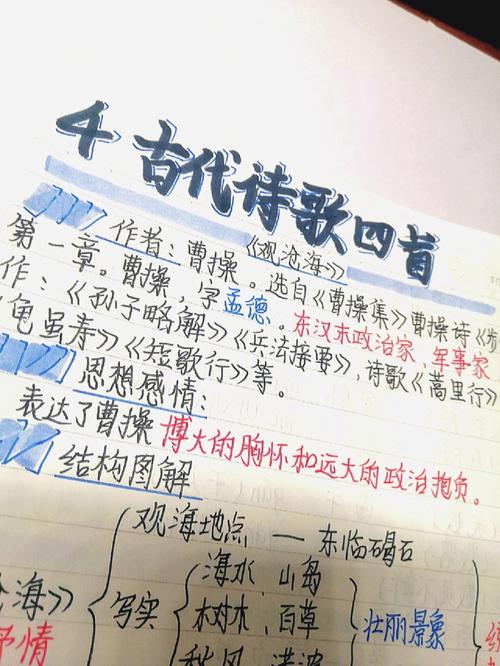 4 古代诗歌四首
《观沧海》
作者：曹操。选自《曹操集》曹操诗《步
第一章。曹操，字孟德。东汉末政治家、军事家
作：《孙子略解》《兵法接要》，诗歌《蒿里行》
龟虽寿》《短歌行》等。
思想感情：
表达了曹操博大的胸怀和远大的政治抱负。
结构图解
观海地点 — 东临碣石
海水、山岛
沧海》 写实 树木、百草 壮丽景象
抒情 秋风、洪波